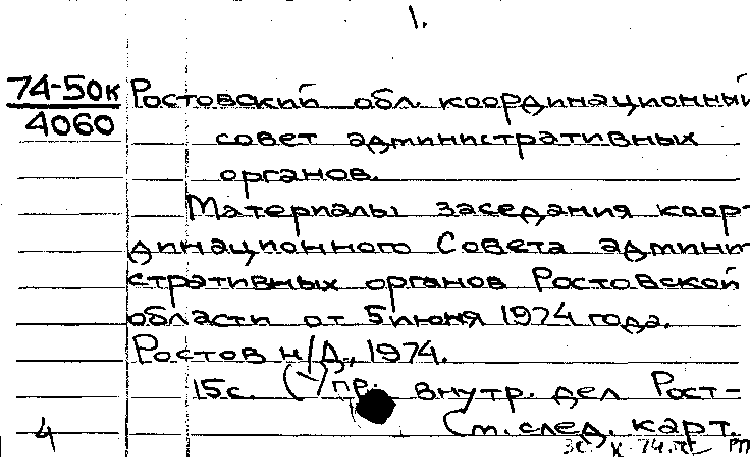 1.
74-50к Ростовский обл. координационный
4060 совет административных
органов.
Материалы заседания коор-
динационного Совета админи-
стративных органов Ростовской
области от 5 июня 1974 года.
Ростов н/Д., 1974.
15 с. (-)/пр. внутр. дел Рост-
См. след. карт.
4